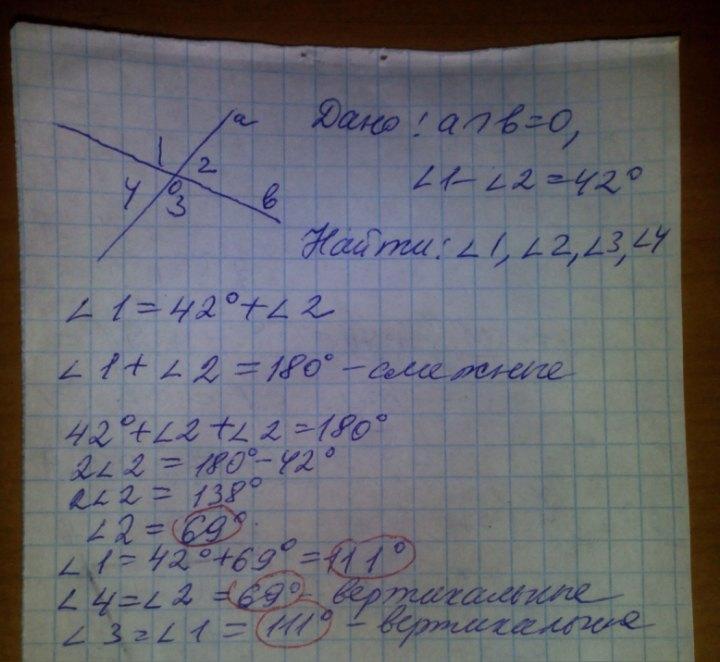 a
1
2
4
O
3
в
Дано: a∩в=O,
∠1-∠2=42°
Найти: ∠1, ∠2, ∠3, ∠4
∠1=42°+∠2
∠1+∠2=180° - смежные
42°+∠2+∠2=180°
2∠2=180°-42°
2∠2=138°
∠2=69°
∠1=42°+69°=111°
∠4=∠2=69° - вертикальные
∠3=∠1=111° - вертикальные